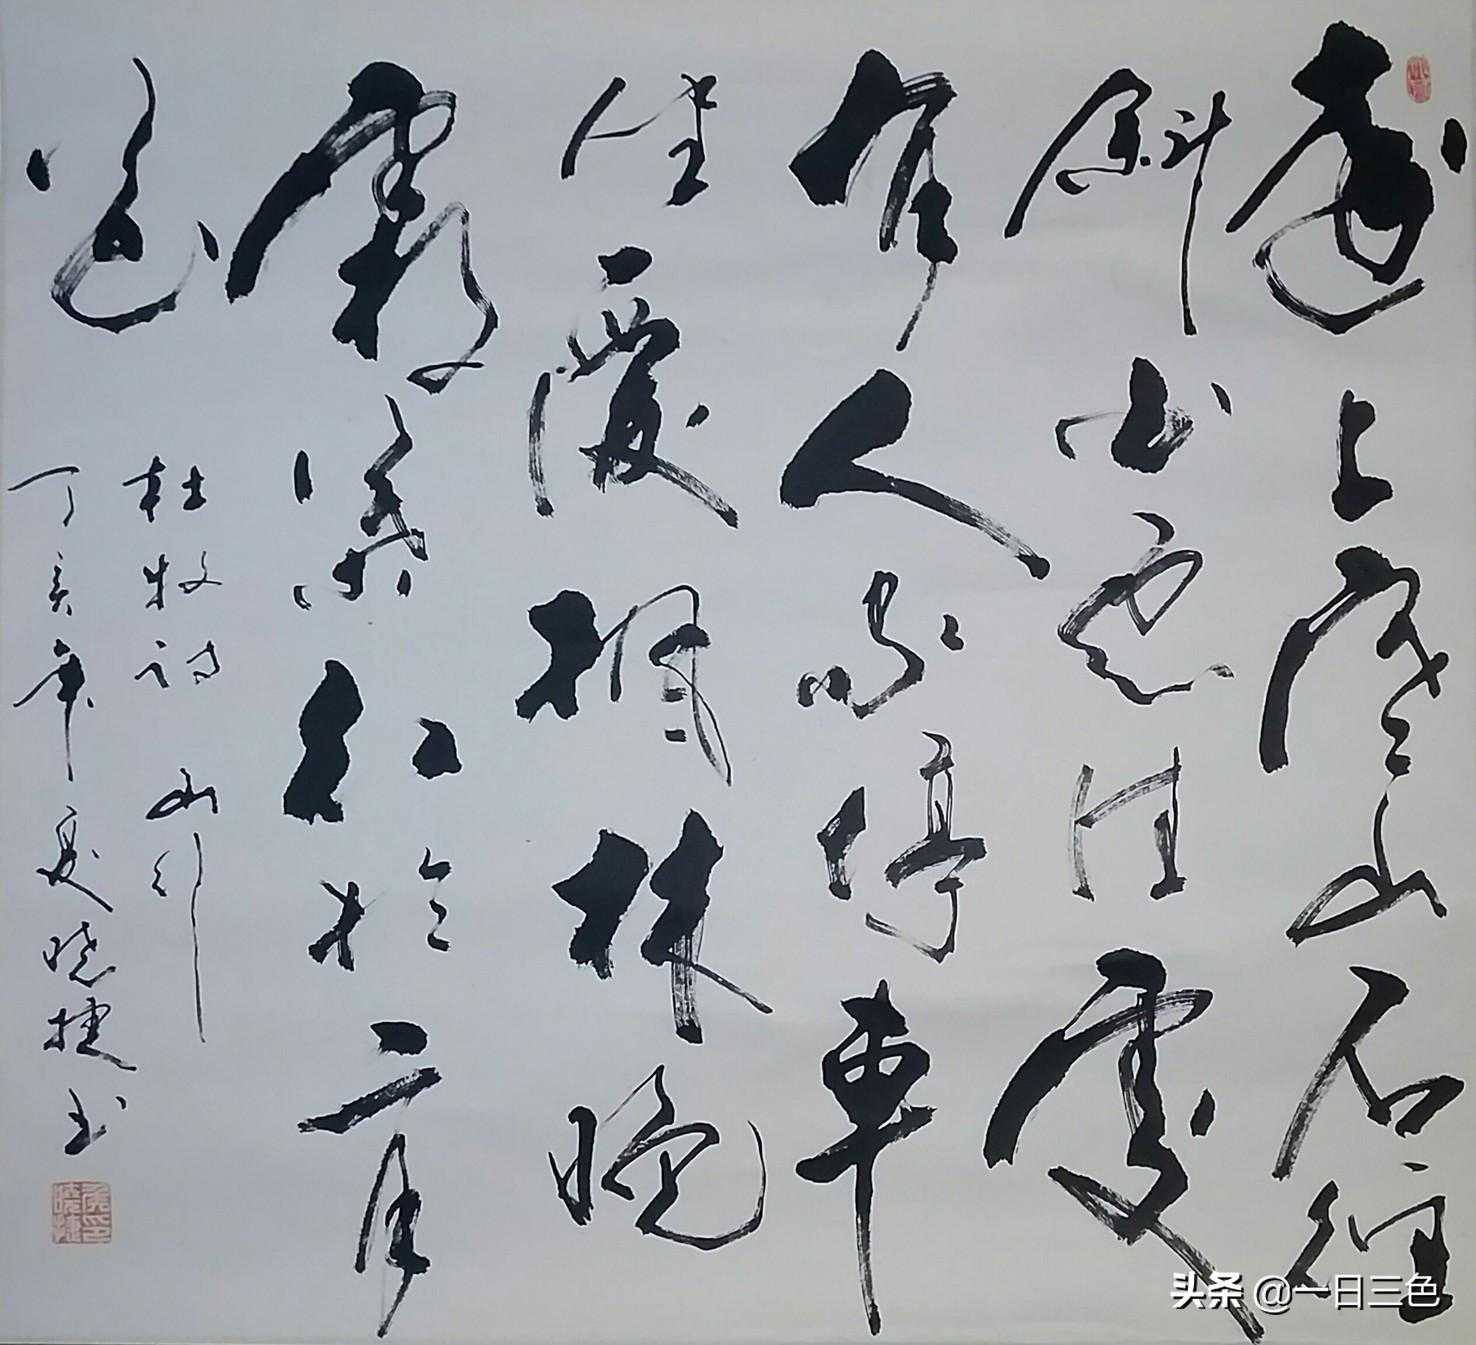 遠上寒山石径
斜白云生處
有人家停車
坐愛枫林晚
霜葉红於二月
花
杜牧诗 山行
丁亥年夏晓捷书
头条 @一日三色